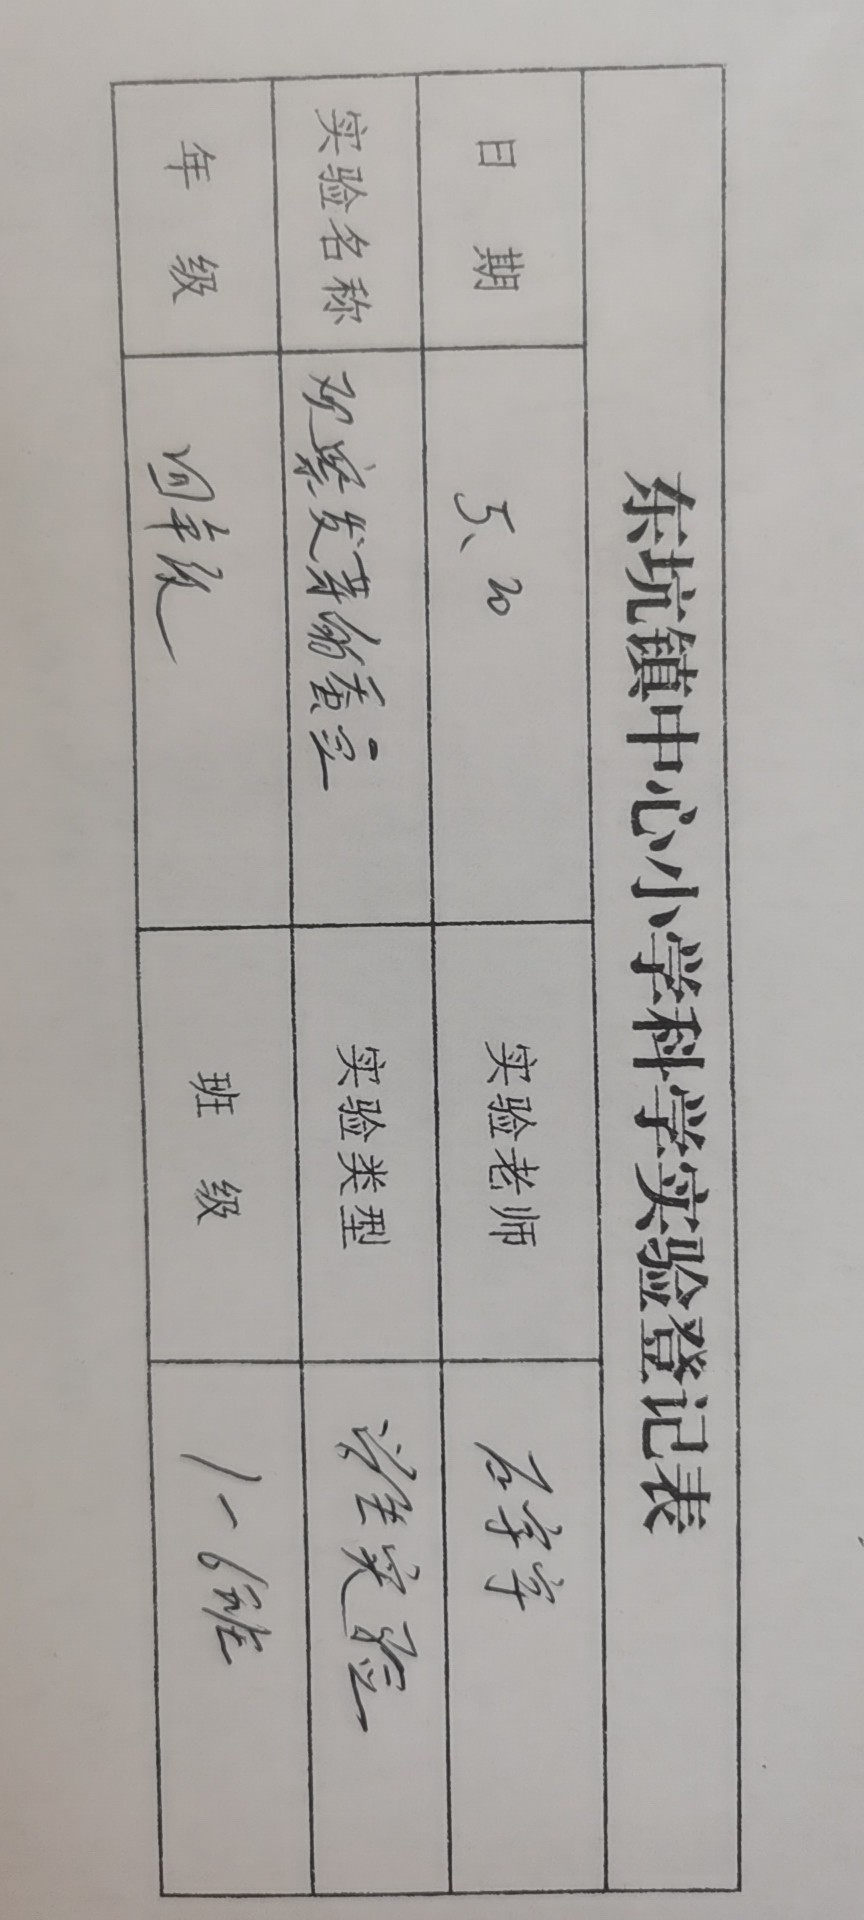 东坑镇中心小学科学实验登记表
日 期 5、20 实验老师 石宇宇
实验名称 观察发芽的蚕豆 实验类型 学生实验
年 级 四年级 班 级 1-6班